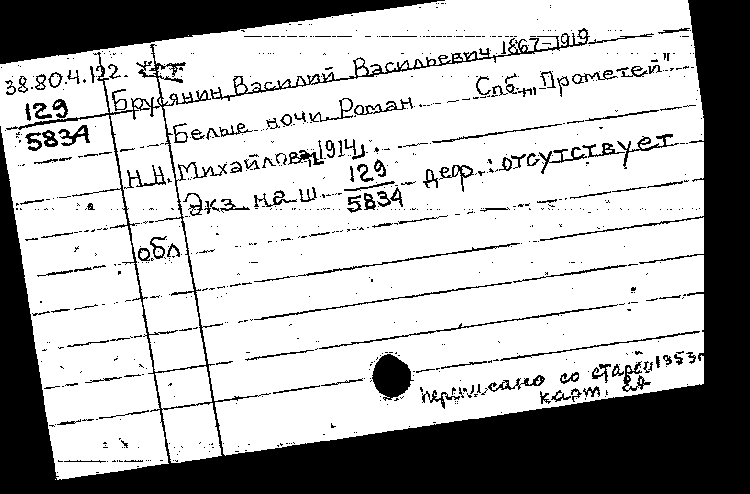 38.80.4.122.
129
5834
Брусянин, Василий Васильевич, 1867-1919
Белые ночи. Роман. Спб., "Прометей"
Н.Н. Михайлова, [1914].
Экз. на ш. 129
5834 деф.: отсутствует
обл
переписано со старой 1953г
карт.